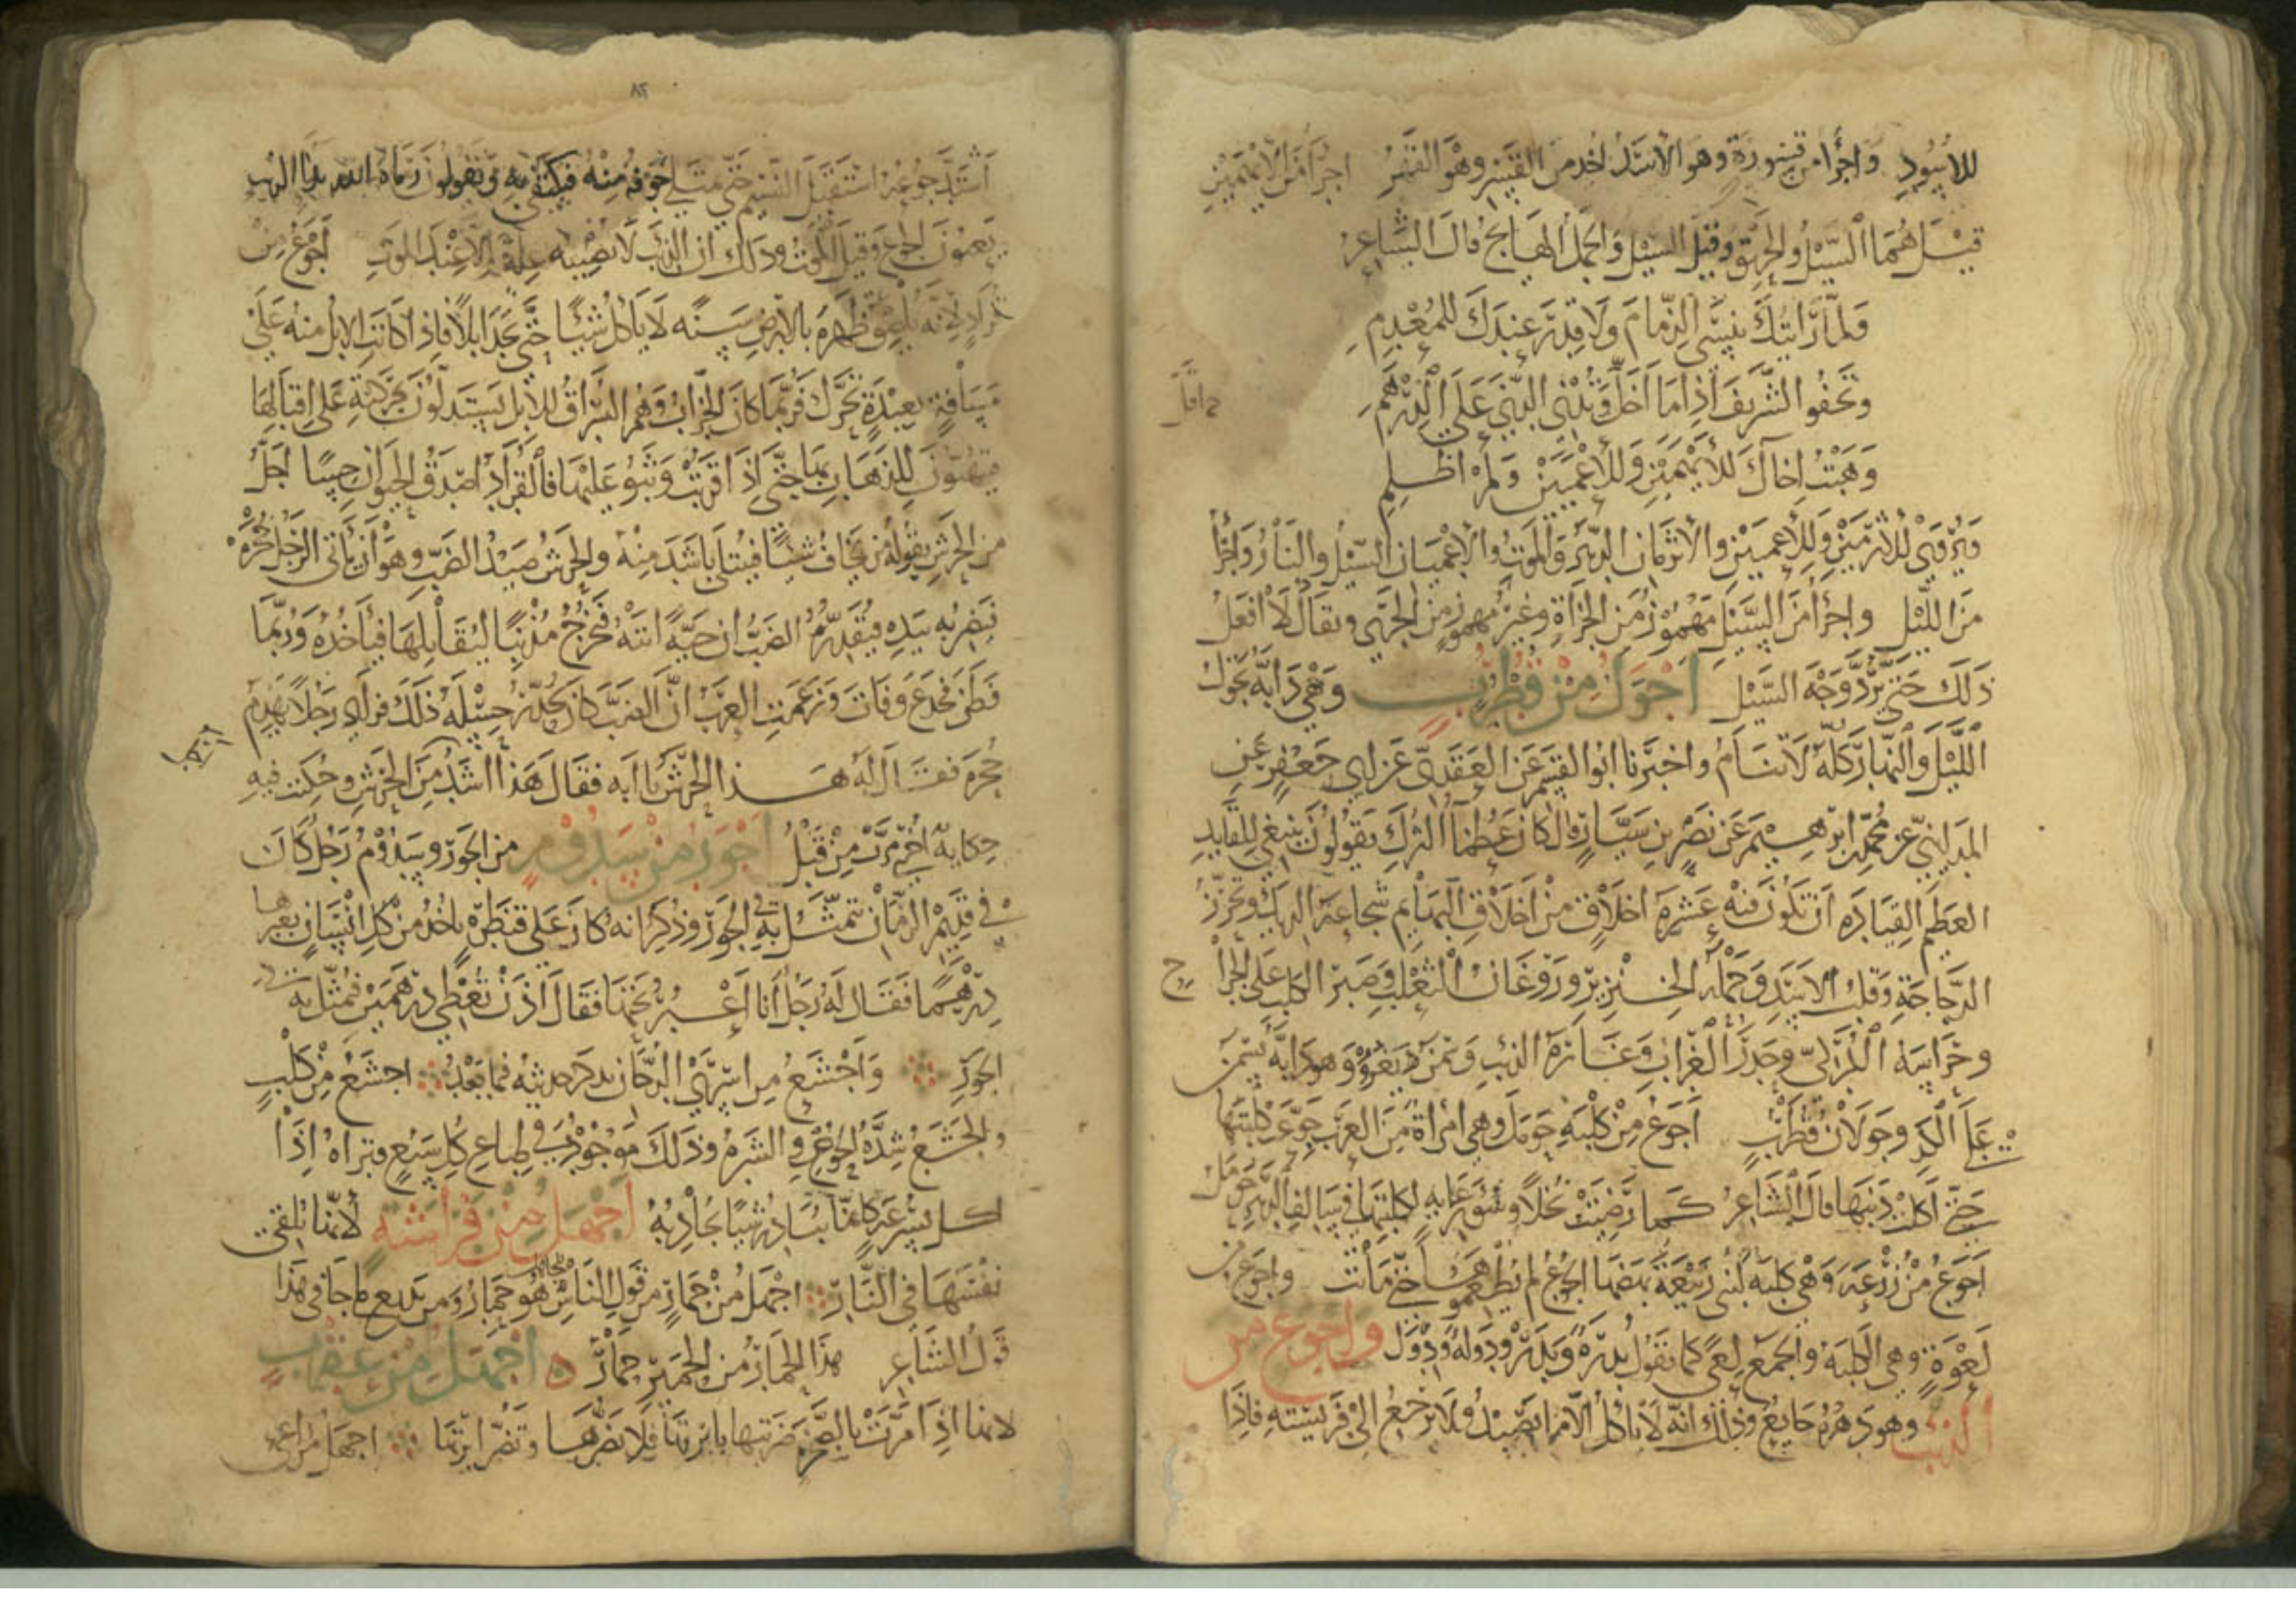 للاسود واجرأ من قسورة وهو الاسد اخذ من القسر وهو القهر اجرا من الايهمين
قيل هما السيل والحريق وقيل السيل والجمل الهايج قال الشاعر
ولما رأيتك تنسى الذمام ولا قدر عندك للمعدم
وتجفو الشريف اذا ما اخل وتدني الدني على الدرهم
وهبت اخاك للايهمين وللاعميين ولم اظلم
ويروى للاثرمين وللاعميين والاثرمان الدهر والموت والاعميان السيل والنار واجرأ
من الليل واجرأ من السيل مهموز من الجرأة وغير مهموز من الجري ويقال لا افعل
ذلك حتى يرد وجه السيل اجول من قطرب وهي دابة تجول
الليل والنهار كله لا تنام واخبرنا ابو القسم عن العقدي عن ابي جعفر عن
المدايني عن محمد بن ابرهيم عن نصر بن سيار قال كان عظما الترك يقولون ينبغي للقايد
العظيم القياده ان تكون فيه عشرة اخلاق من اخلاق البهايم شجاعة الديك وتحرز
الدجاجة وقلب الاسد وحملة الخنزير وروغان الثعلب وصبر الكلب على الجراح
وحراسة الكركي وحذر الغراب وغارة الذيب وسمن يعرو وهو دابة تسمن
على الكد وجولان قطرب اجوع من كلبة حومل وهي امرأة من العرب جوعت كلبتها
حتى اكلت ذنبها قال الشاعر كما رضيت بخلا وسو رعاية لكلبتها في سالف الدهر حومل
اجوع من زرعة وهي كلبة لبني ربيعة بعضها الجوع لم يطعموها حتى ماتت واجوع من
لعوة وهي الكلبة والجمع لعى كما تقول بدرة وبدر ودولة ودول واجوع من
الذيب وهو دهره جايع وذلك انه لا ياكل الا ما يصيد ولا يرجع الى فريسته فاذا
٨٢
اشتد جوعه استقبل النسيم حتى يمتلي جوفه منه فيكتفي به ويقولون رماه الله بدا الذيب
يعنون الجوع وقيل الموت وذلك ان الذيب لا يصيبه علة الا عند الموت اجوع من
قراد لانه يلصق ظهره بالارض سنة لا ياكل شيئا حتى يجد ابلا فاذا كانت الابل منه على
مسافة بعيدة تحرك فربما كان الخراب وهم السراق للابل يستدلون بحركته على اقبالها
فيتهيون للذهاب بها حتى اذا قربت وثبوا عليها فالقراد اصدق الحيوان حسا اجل
من الحرش يقوله من يخاف شيئا فيبتلى باشد منه والحرش صيد الضب وهو ان ياتي الرجل جحره
فيضربه بيده فيقدر الضب ان حية اتته فيخرج مذنبا ليقابلها فياخذه وربما
فطن فخدع وفات وزعمت العرب ان الضب كان يحذر حسله ذلك فراى رجلا يهدم
جحره فقال له هذا الحرش يا ابه فقال هذا اشد من الحرش وحكيت فيه
حكاية اخرى مرت من قبل اجور من سدوم من الجور وسدوم رجل كان
في قديم الزمان يتمثل به في الجور وذكر انه كان على قنطرة ياخذ من كل انسان يعبرها
درهما فقال له رجل انا اعبر تحتها فقال اذن تعطي درهمين فمثل به في
الجور واجشع من اسرى الدخان يذكر حديثه فيما بعد اجشع من كلب
والجشع شدة الجوع والشره وذلك موجود في طباع كل سبع وتراه اذا
اكل بسرعة كانما يبادر شيئا يجاذبه اجهل من فراشة لانها تلقى
نفسها في النار اجهل من حمار من قول الناس للجاهل هو حمار ومن بديع ما جا في هذا
قول الشاعر هذا الحمار من الحمير حمار ه اجهل من عقرب
لانها اذا مرت بالصخر ضربتها بابرتها فلا تضرها وتضر ابرتها اجهل من راعي